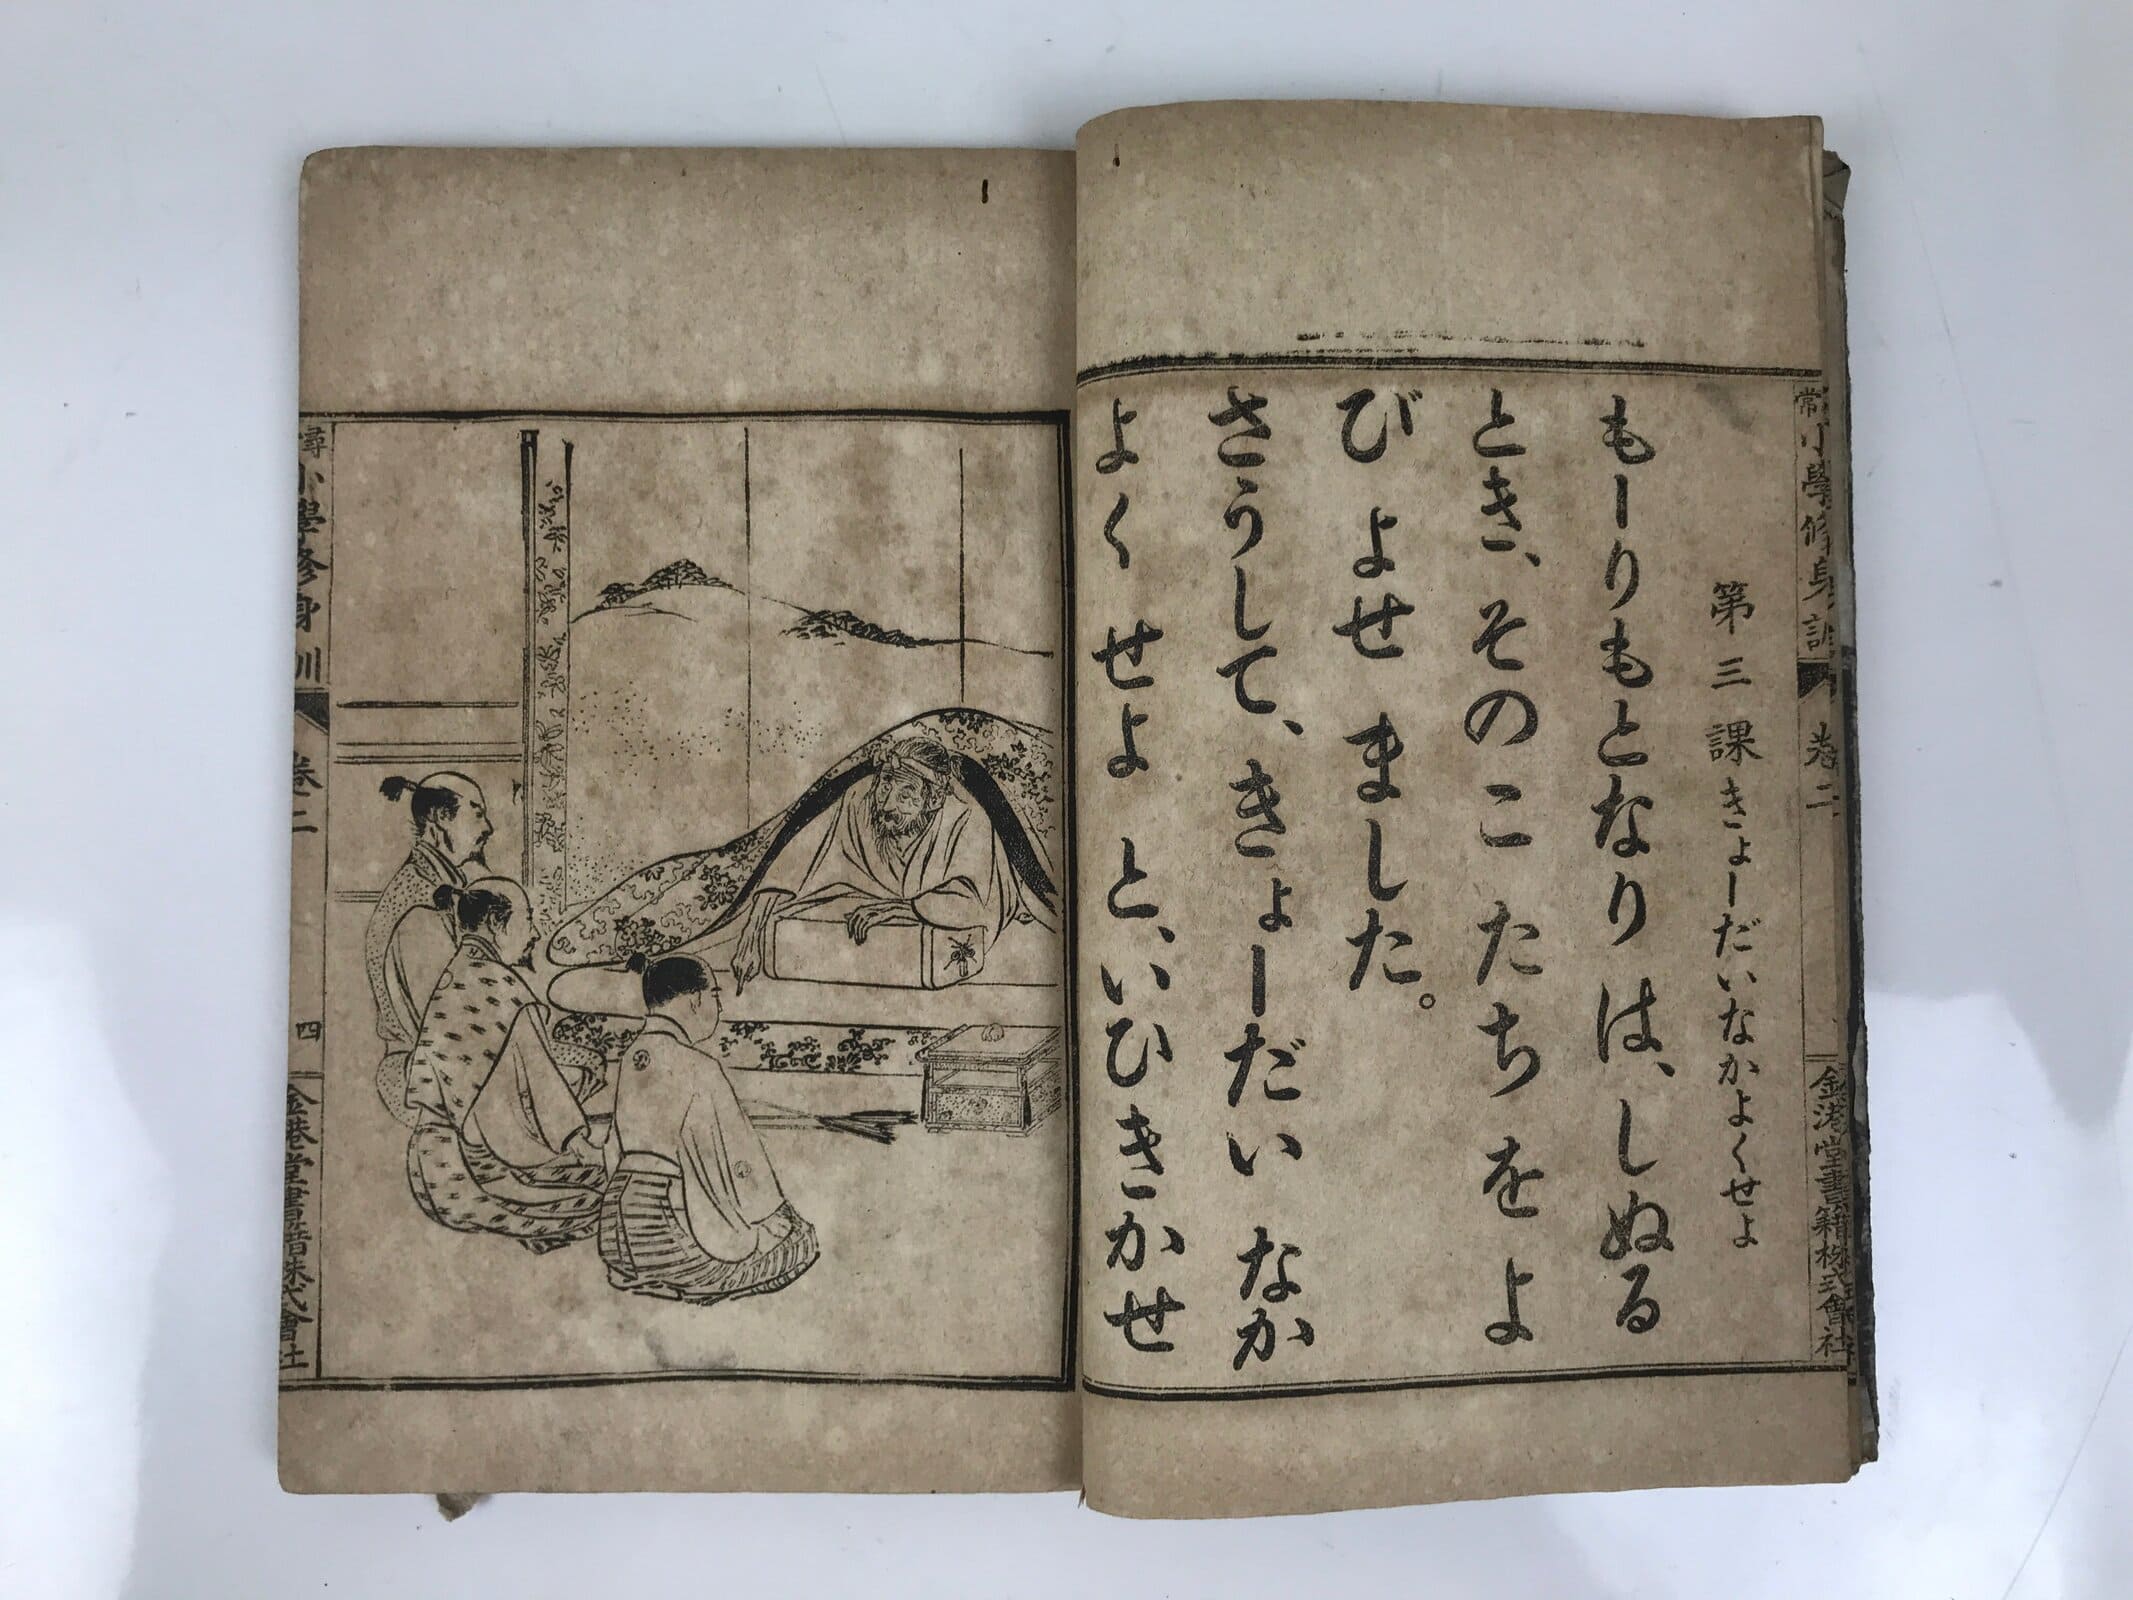 常 小學修身訓 卷二 金港堂書籍株式會社
第三課 きょーだいなかよくせよ
もーりもとなり は、しぬる
とき、そのこたちをよ
びよせました。
さうして、きょーだい なか
よくせよ と、いひきかせ
尋 小學修身訓 卷二 四 金港堂書籍株式會社